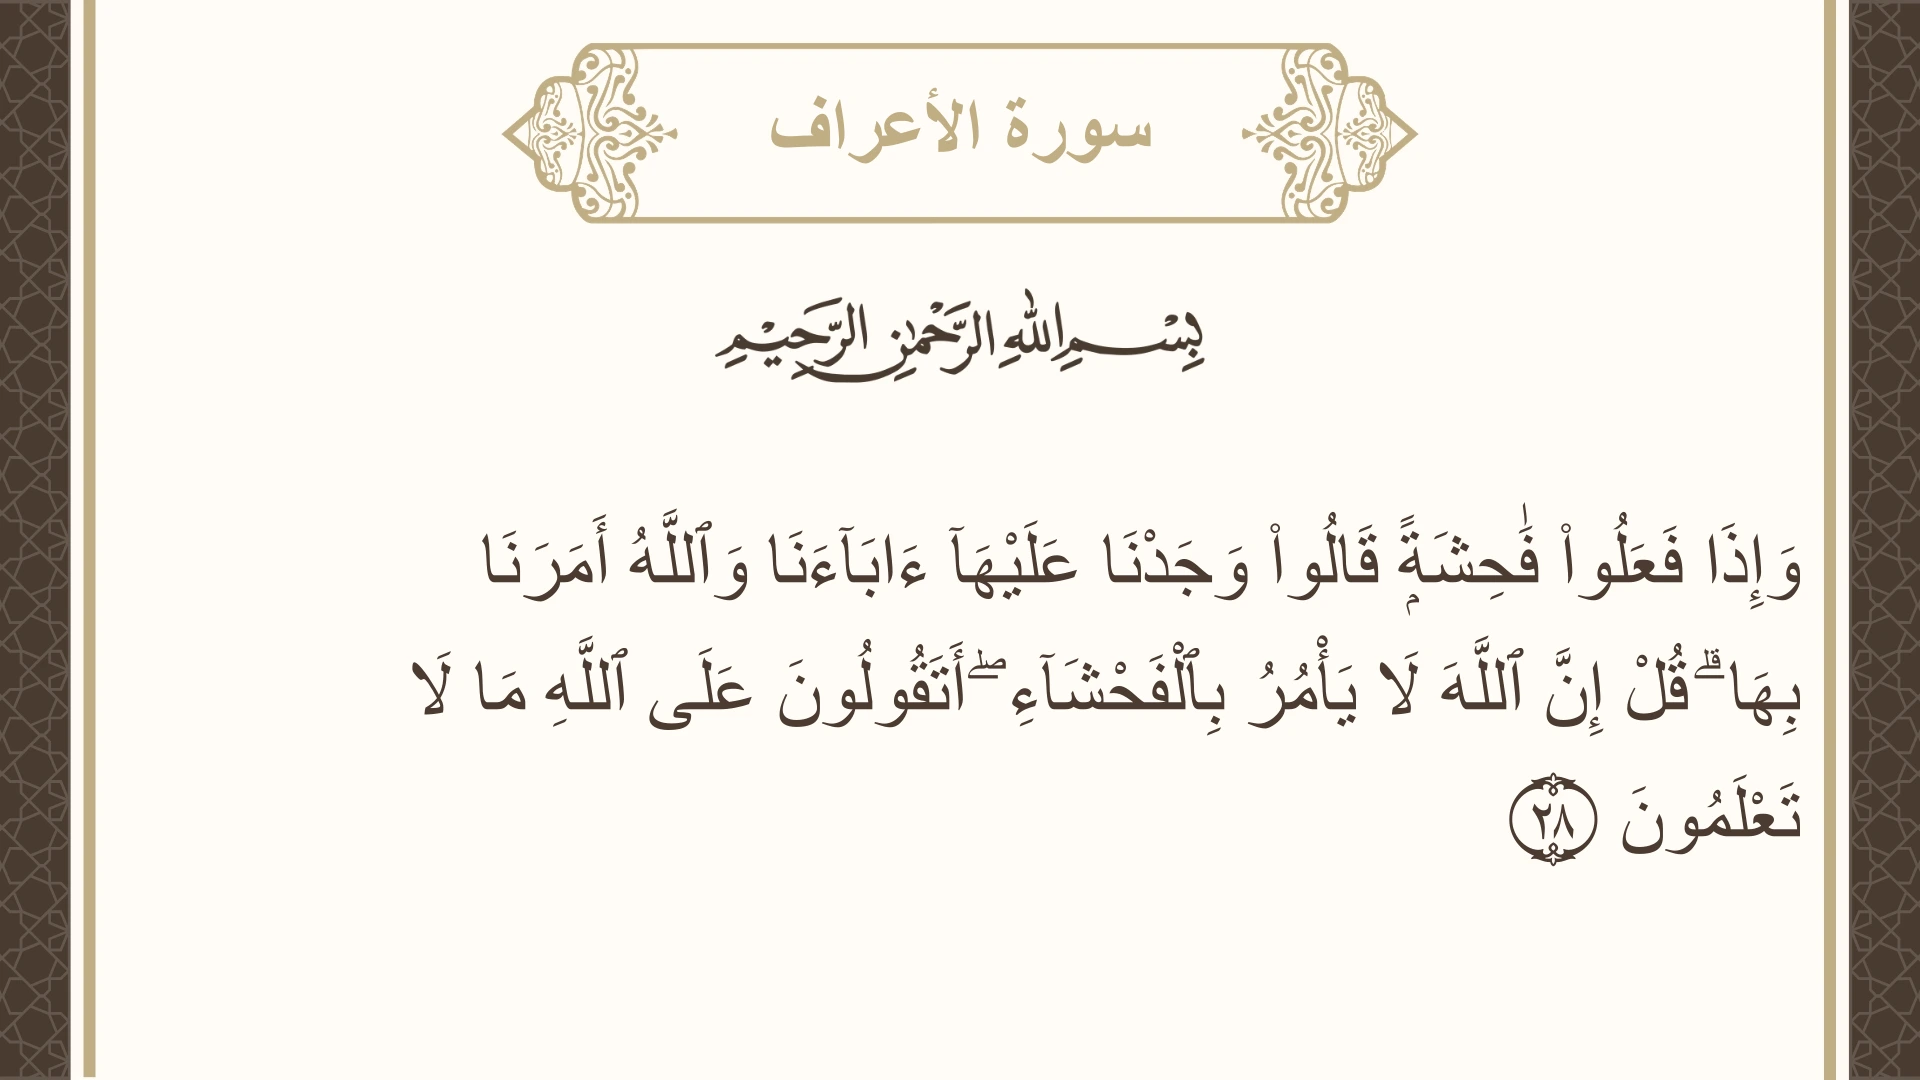 سورة الأعراف
بِسْمِ اللهِ الرَّحْمٰنِ الرَّحِيْمِ
وَإِذَا فَعَلُوا۟ فَٰحِشَةًۭ قَالُوا۟ وَجَدْنَا عَلَيْهَآ ءَابَآءَنَا وَٱللَّهُ أَمَرَنَا
بِهَا ۗ قُلْ إِنَّ ٱللَّهَ لَا يَأْمُرُ بِٱلْفَحْشَآءِ ۖ أَتَقُولُونَ عَلَى ٱللَّهِ مَا لَا
تَعْلَمُونَ ٢٨